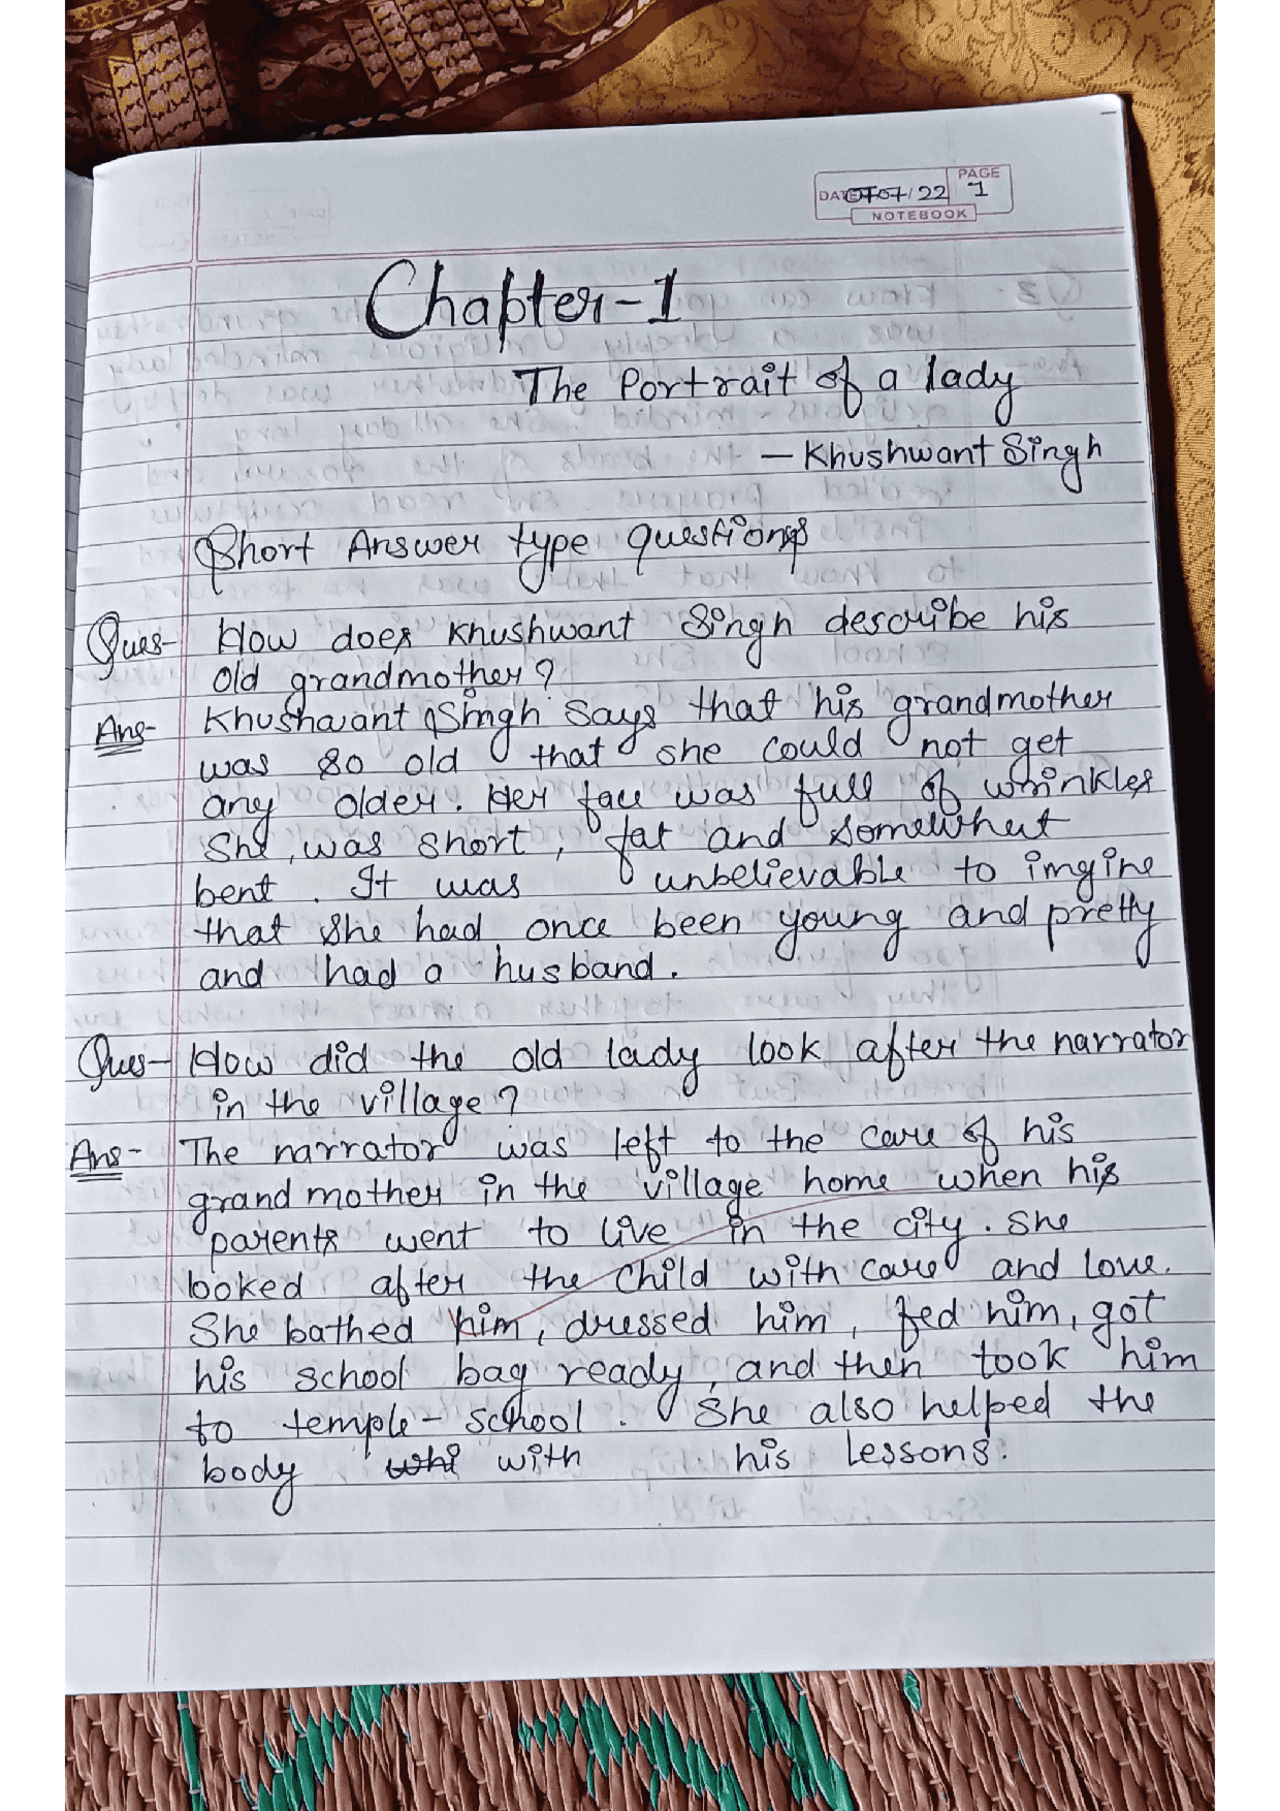 DATE 07/07/22 PAGE 1
NOTEBOOK
Chapter-1
The Portrait of a lady
— Khushwant Singh
Short Answer type questions
Ques- How does Khushwant Singh describe his
old grandmother?
Ans- Khushwant Singh says that his grandmother
was so old that she could not get
any older. Her face was full of wrinkles
She, was short, fat and somewhat
bent. It was unbelievable to imgine
that she had once been young and pretty
and had a husband.
Ques- How did the old lady look after the narrator
in the village?
Ans- The narrator was left to the care of his
grand mother in the village home when his
parents went to live in the city. She
looked after the child with care and love.
She bathed him, dressed him, fed him, got
his school bag ready, and then took him
to temple-school. She also helped the
body whi with his lessons.